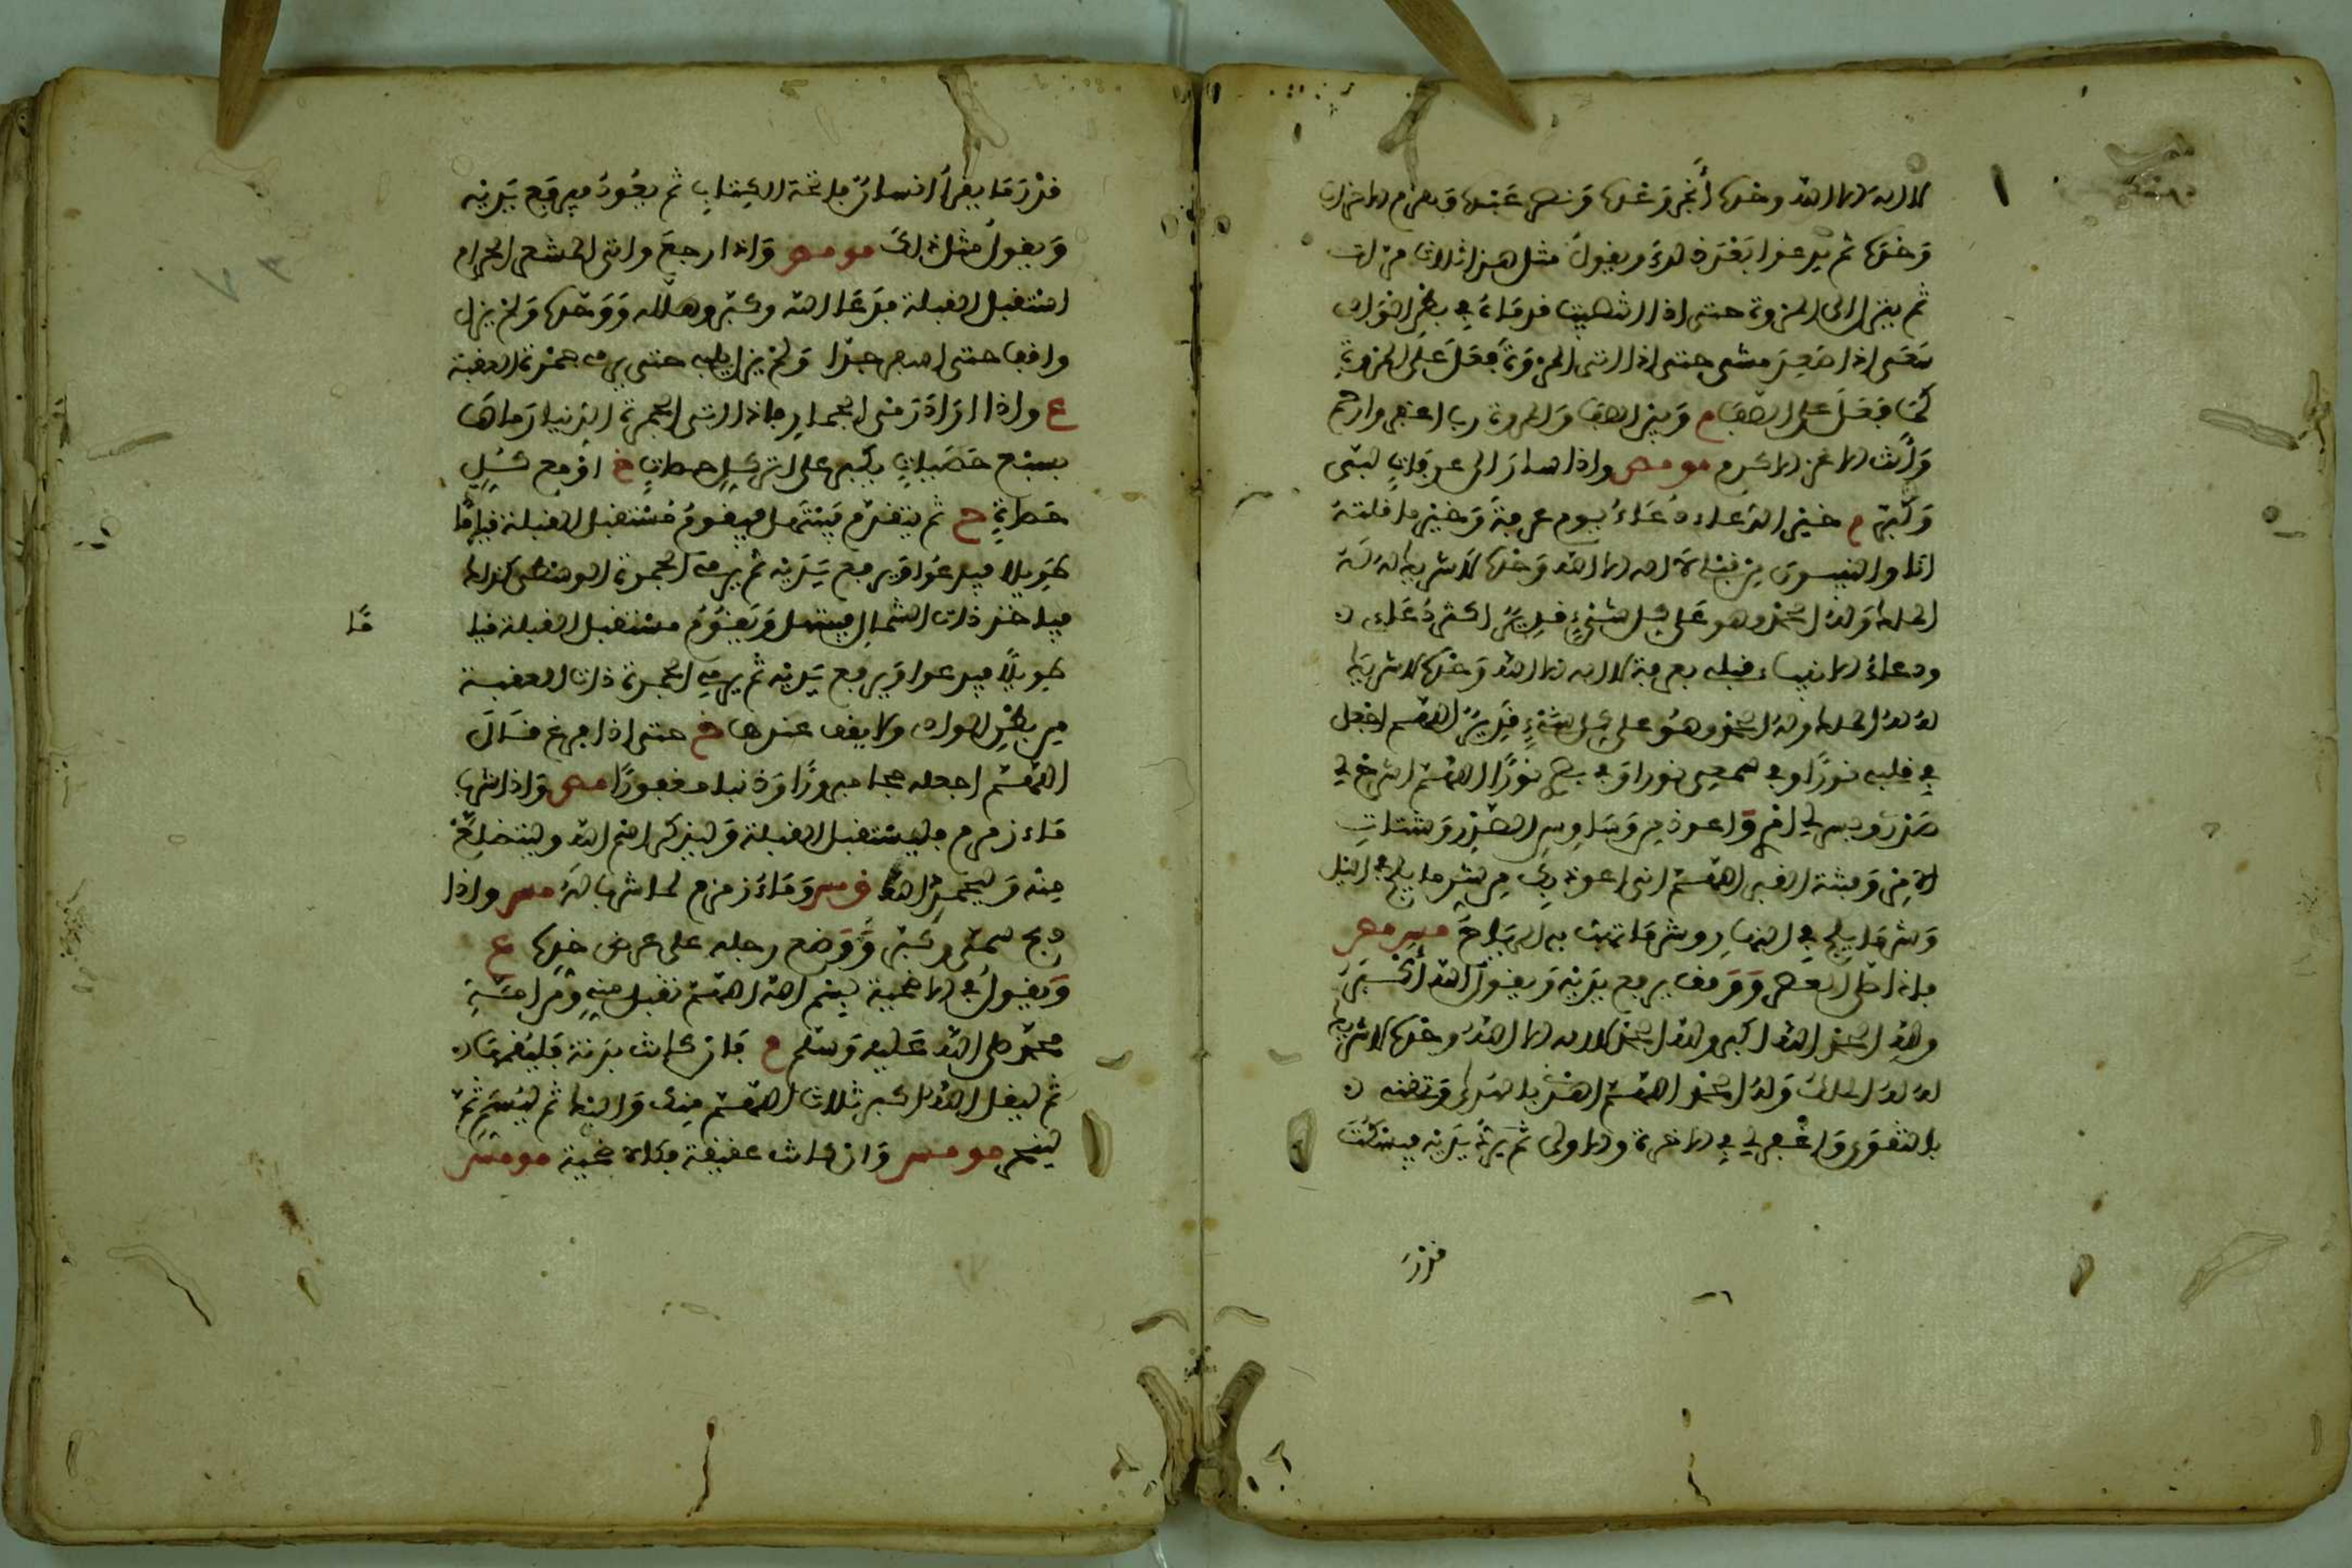 لا اله الا الله وحده أنجز وعده ونصر عبده وهزم الاحزاب
وحده ثم يدعوا بعد ذلك ويقول مثل هذا ثلاث مرات
ثم ينزل الى المروة حتى اذا انتصبت قدماه في بطن الوادي
سعى اذا صعد مشى حتى اذا اتى المروة ففعل على المروة
كما فعل على الصفا م وبين الصفا والمروة رب اغفر وارحم
وأنت الاعز الاكرم مو مص واذا سار الى عرفات لبى
وكبر م خير الدعاء دعاء يوم عرفة وخير ما قلته
انا والنبيون من قبلي لا اله الا الله وحده لا شريك له له
الملك وله الحمد وهو على كل شيء قدير اكثر دعاءي
ودعاء الانبياء قبلي بعرفة لا اله الا الله وحده لا شريك
له له الملك وله الحمد وهو على كل شيء قدير اللهم اجعل
في قلبي نورا وفي سمعي نورا وفي بصري نورا اللهم اشرح لي
صدري ويسر لي امري واعوذ من وساوس الصدر وشتات
الامر وفتنة القبر اللهم اني اعوذ بك من شر ما يلج في الليل
وشر ما يلج في النهار وشر ما تهب به الرياح مص
فاذا صلى العصر ووقف يرفع يديه ويقول الله أكبر
ولله الحمد الله اكبر ولله الحمد لا اله الا الله وحده لا شريك
له له الملك وله الحمد اللهم اهدني بالهدى ونقني
بالتقوى واغفر لي في الاخرة والاولى ثم يرد يديه فيسكت
قدر
قدر ما يقرأ انسان فاتحة الكتاب ثم يعود فيرفع يديه
ويقول مثل ذلك مو مص واذا رجع واتى المشعر الحرام
استقبل القبلة فدعا الله وكبره وهلله ووحده ولم يزل
واقفا حتى اسفر جدا ولم يزل يلبي حتى يرمي جمرة العقبة
ع واذا اراد رمي الجمار فاذا اتى الجمرة الدنيا رماها
بسبع حصيات يكبر على اثر كل حصاة خ او مع كل
حصاة خ ثم يتقدم فيسهل فيقوم مستقبل القبلة قياما
طويلا فيدعوا ويرفع يديه ثم يرمي الجمرة الوسطى كذلك
فياخذ ذات الشمال فيسهل ويقوم مستقبل القبلة قيا
ما
طويلا فيدعوا ويرفع يديه ثم يرمي الجمرة ذات العقبة
من بطن الوادي ولا يقف عندها خ حتى اذا فرغ قال
اللهم اجعله حجا مبرورا وذنبا مغفورا مص واذا شرب
ماء زمزم فليستقبل القبلة وليذكر اسم الله وليتضلع
منه وليحمد الله ق مس وماء زمزم لما شرب له مس واذا
ذبح سمى وكبر ووضع رجله على عرض خده ع
ويقول في الاضحية بسم الله اللهم تقبل مني ومن امة
محمد صلى الله عليه وسلم م فان كانت بدنة فليقمها
ثم ليقل الله اكبر ثلاث اللهم منك واليك ثم ليسم ثم
لينحر مو مس وان كانت عقيقة فكالاضحية مو مس